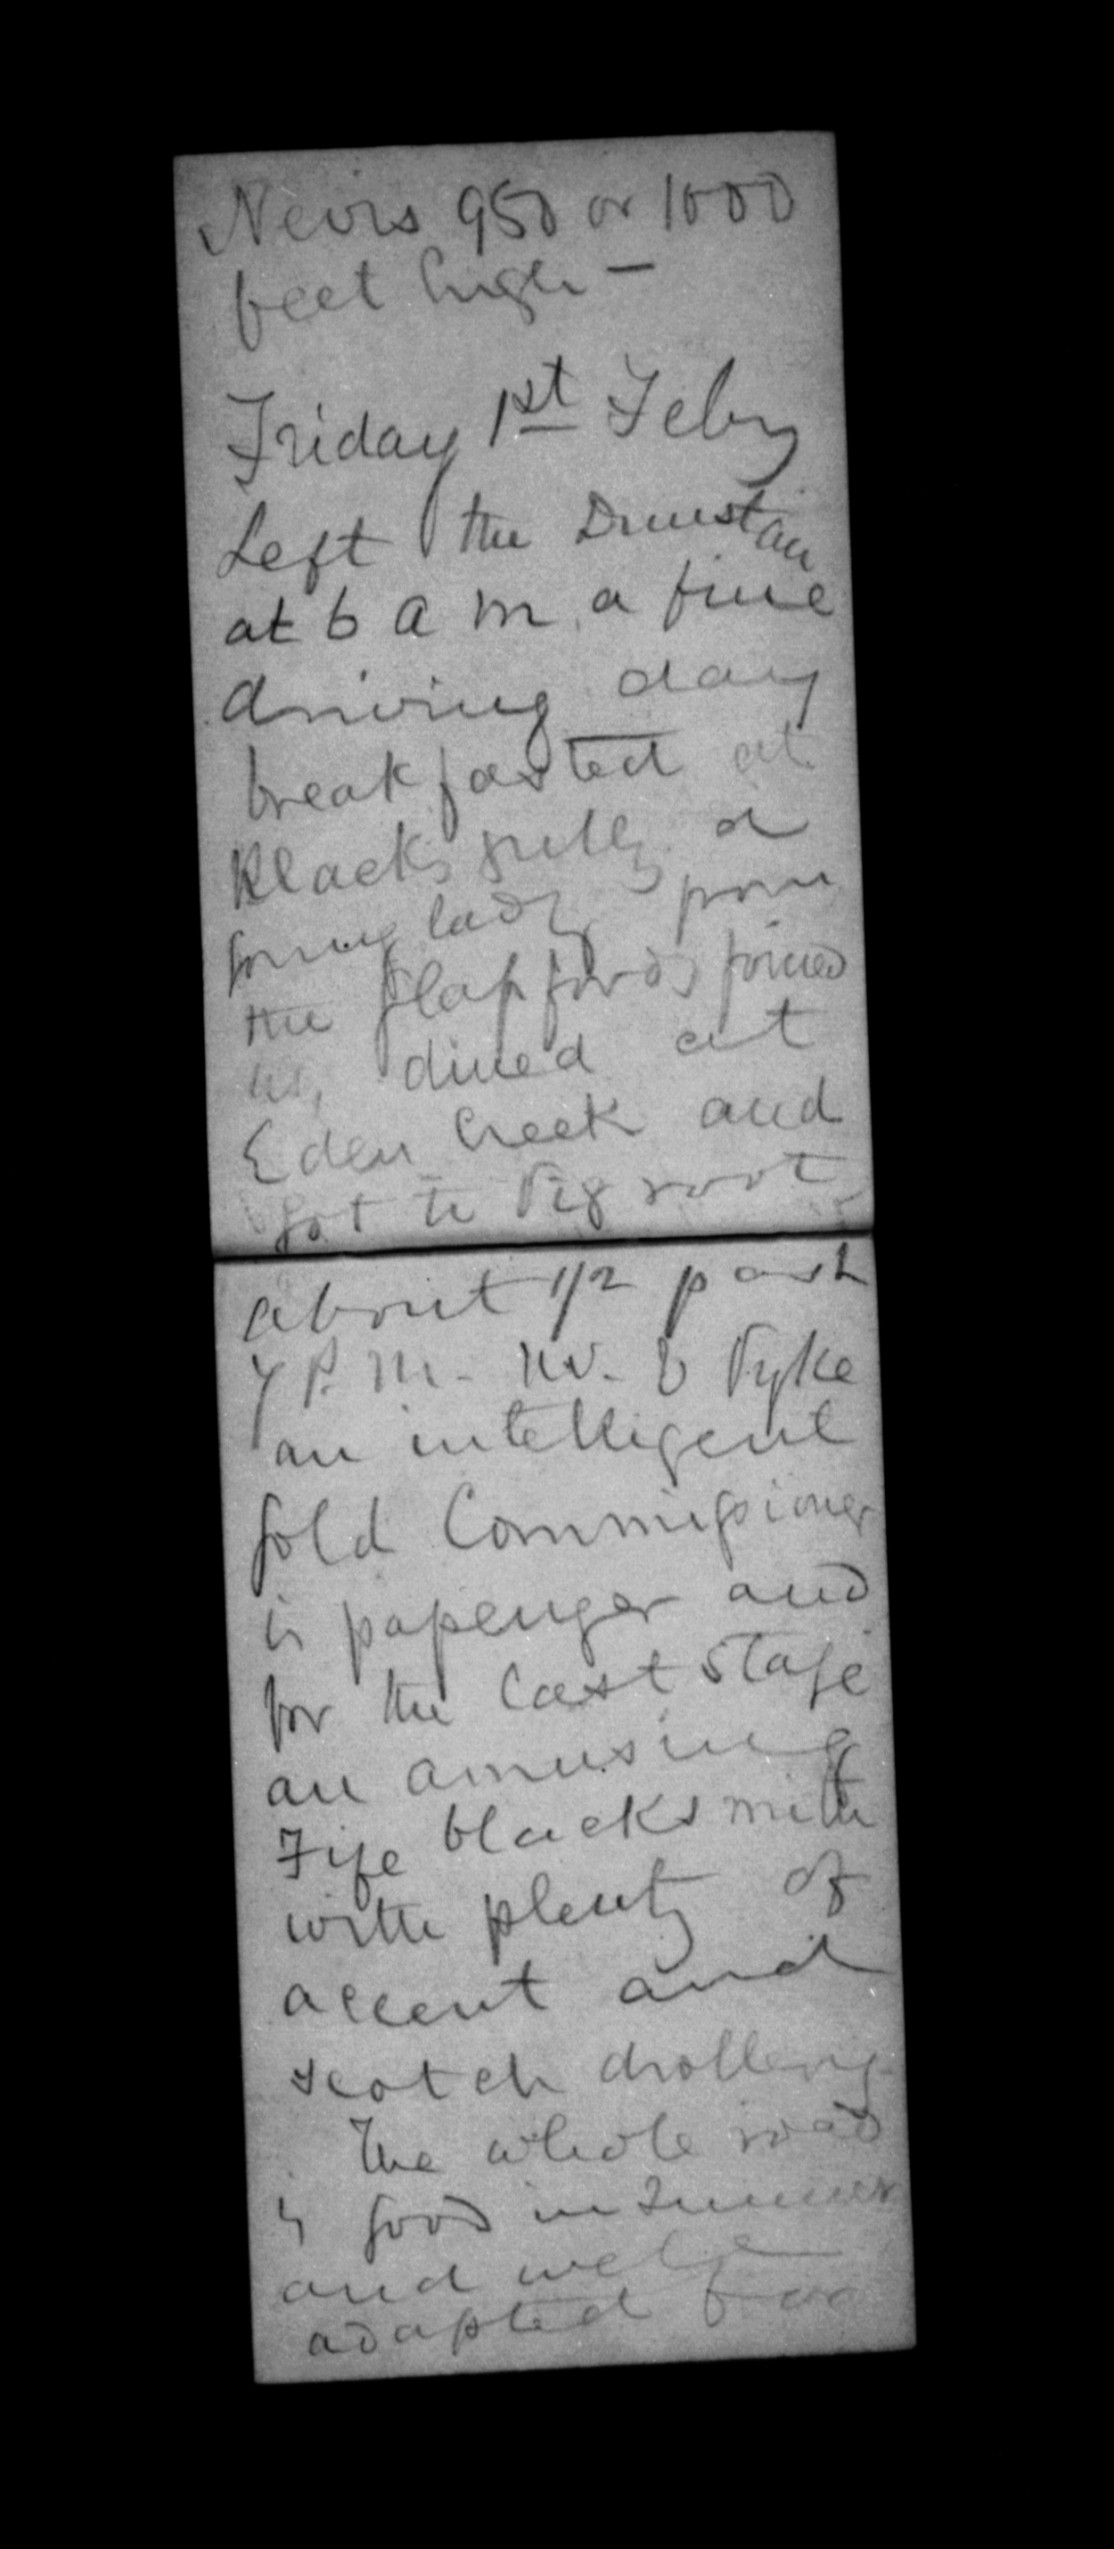 Nevis 950 or 1000
feet high —
Friday 1st Feby
Left the Dunstan
at 6 a m. a fine
driving day
breakfasted at
Blacks gully a
young lady from
the joined
us, dined at
Eden Creek and
got to Pigroot
about 1/2 past
7 P.M. Pyke
an intelligent
Gold Commissioner
is passenger and
for the last stage
an amusing
Fife blacksmith
with plenty of
accent and
scotch drollery
The whole road
is good in summer
and well
adapted for